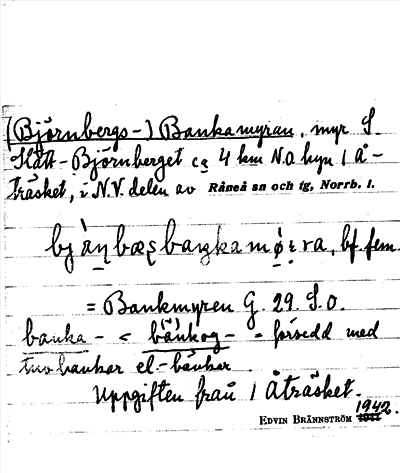 (Björnbergs-) Bankamyran, myr S.
Slått-Björnberget ca 4 km N.O. byn 1 Å-
träsket, i N.V. delen av Råneå sn och tg, Norrb. l.
bjȧṇbæʂbaŋkamǿ̣ɩra, bf. fem.
= Bankmyren G. 29 S.O.
banka- < bänkog- = försedd med
tuvbankar el. -bänkar
Uppgiften från 1 Åträsket.
EDVIN BRÄNNSTRÖM 1942.